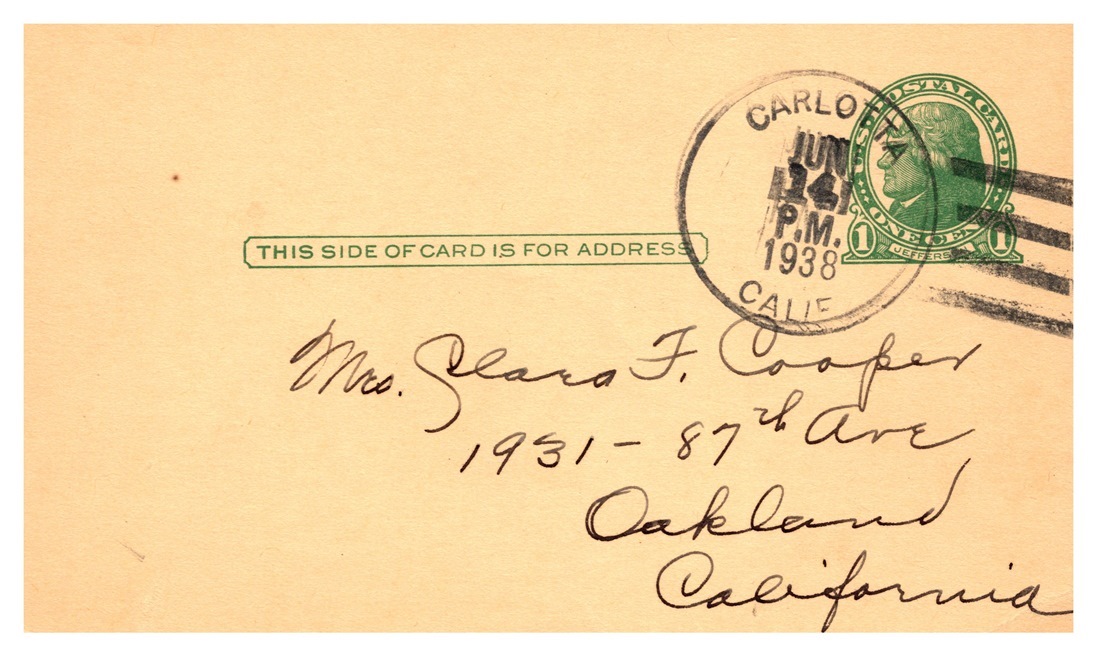 CARLOTTA
JUN
14
P.M.
1938
CALIF
U.S. POSTAL CARD
ONE CENT
1 JEFFERSON 1
THIS SIDE OF CARD IS FOR ADDRESS
Mrs. Clara F. Cooper
1931 - 87th Ave
Oakland
California